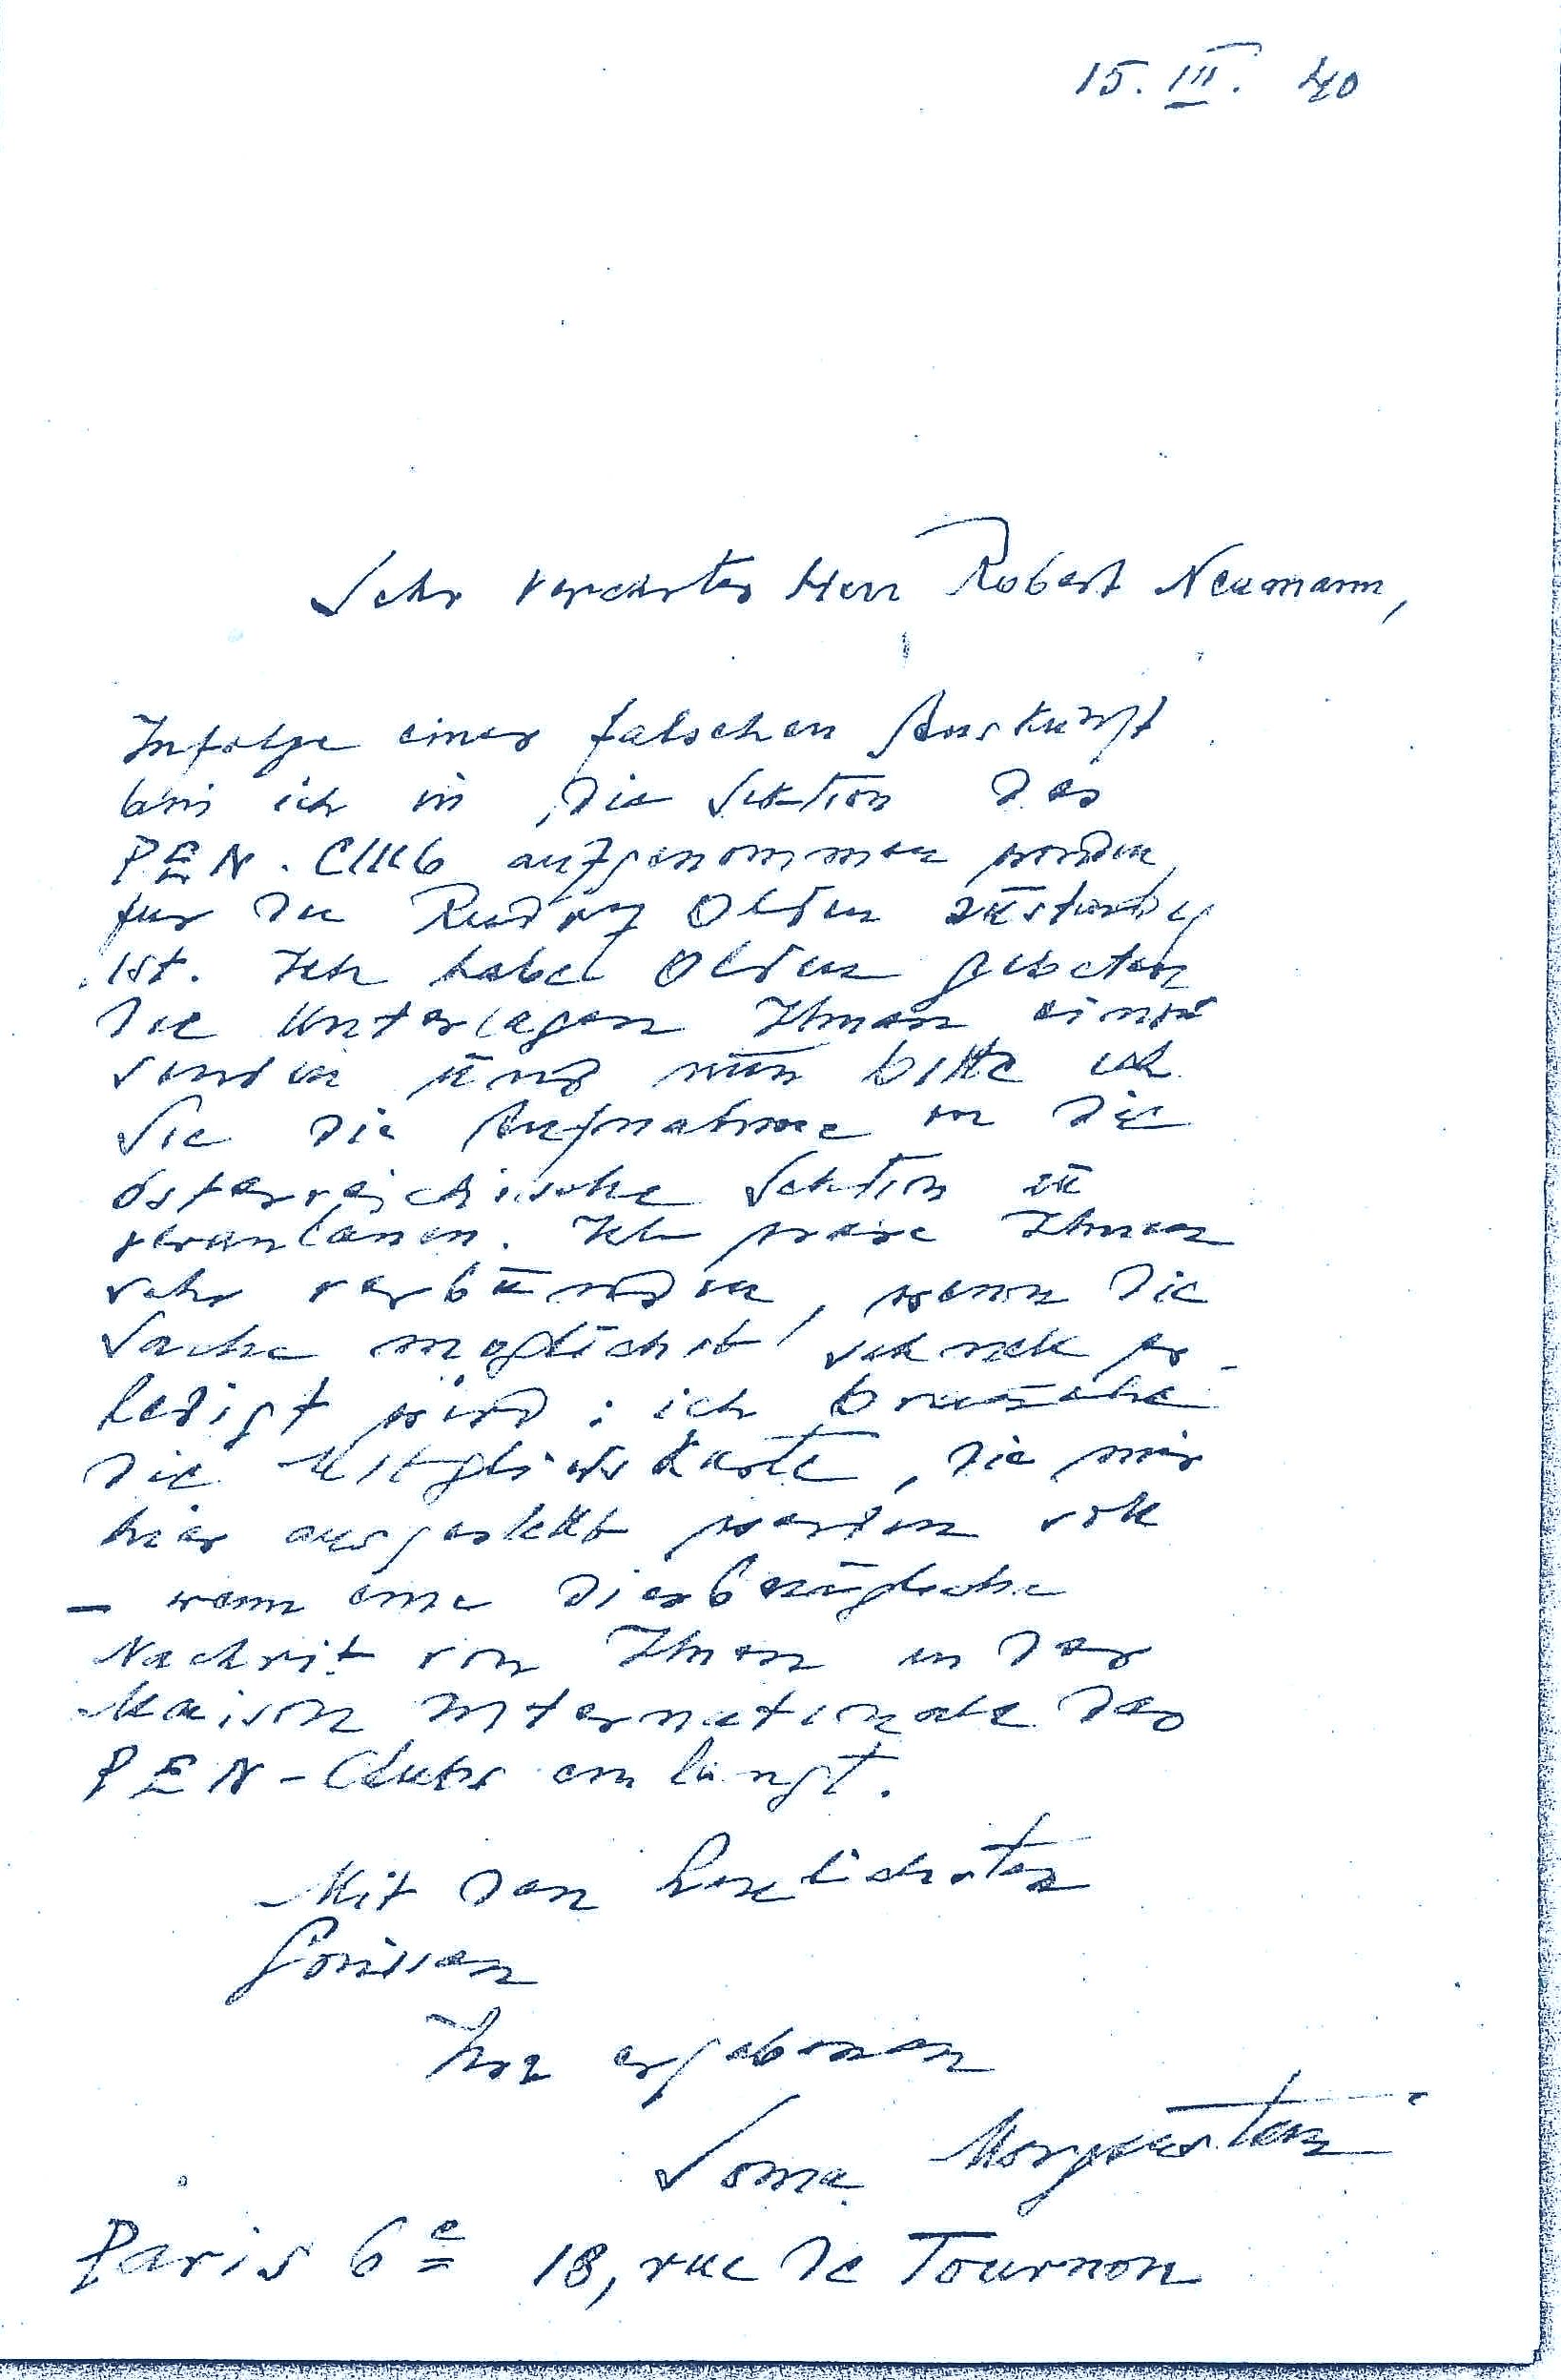 15. III. 40
Sehr verehrter Herr Robert Neumann,
Infolge einer falschen Auskunft
bin ich in die Sektion des
PEN. Club aufgenommen worden,
für die Rudolf Olden zuständig
ist. Ich habe Olden gebeten
die Unterlagen Ihnen einzu
senden und nun bitte ich
Sie die Aufnahme in die
österreichische Sektion zu
veranlassen. Ich wäre Ihnen
sehr verbunden, wenn die
Sache möglichst schnell er-
ledigt wird: ich brauche
die Mitgliedskarte, die mir
hier ausgestellt werden soll
– wenn eine diesbezügliche
Nachricht von Ihnen in der
Maison Internationale des
PEN-Clubs einlangt.
Mit den herzlichsten
Grüssen
Ihr ergebener
Soma Morgenstern
Paris 6e 18, rue de Tournon